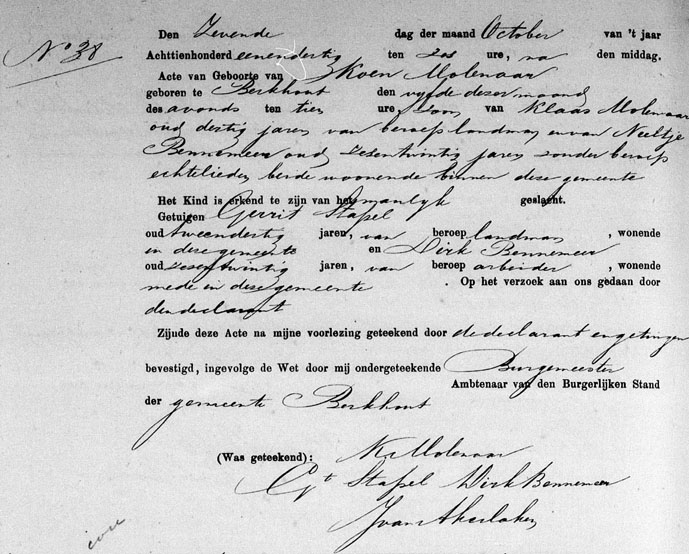 Den Zevende dag der maand October van 't jaar
No 38
Achttienhonderd eenendertig ten zes ure, na den middag.
Acte van Geboorte van Koen Molenaar
geboren te Berkhout den vyfde dezer maand
des avonds ten tien ure, Zoon van Klaas Molenaar
oud dertig jaren van beroep landman en van Neeltje
Bennemeer oud zesentwintig jaren zonder beroep
echtelieden beide woonende binnen deze gemeente
Het Kind is erkend te zijn van het manlyk geslacht.
Getuigen Gerrit Stapel
oud tweendertig jaren, van beroep landman, wonende
in deze gemeente en Dirk Bennemeer
oud zesentwintig jaren, van beroep arbeider, wonende
mede in deze gemeente. Op het verzoek aan ons gedaan door
den declarant
Zijnde deze Acte na mijne voorlezing geteekend door de declarant en getuigen
bevestigd, ingevolge de Wet door mij ondergeteekende Burgemeester
Ambtenaar van den Burgerlijken Stand
der gemeente Berkhout
(Was geteekend): Ks Molenaar
Gt Stapel Dirk Bennemeer
J van Akerlaken